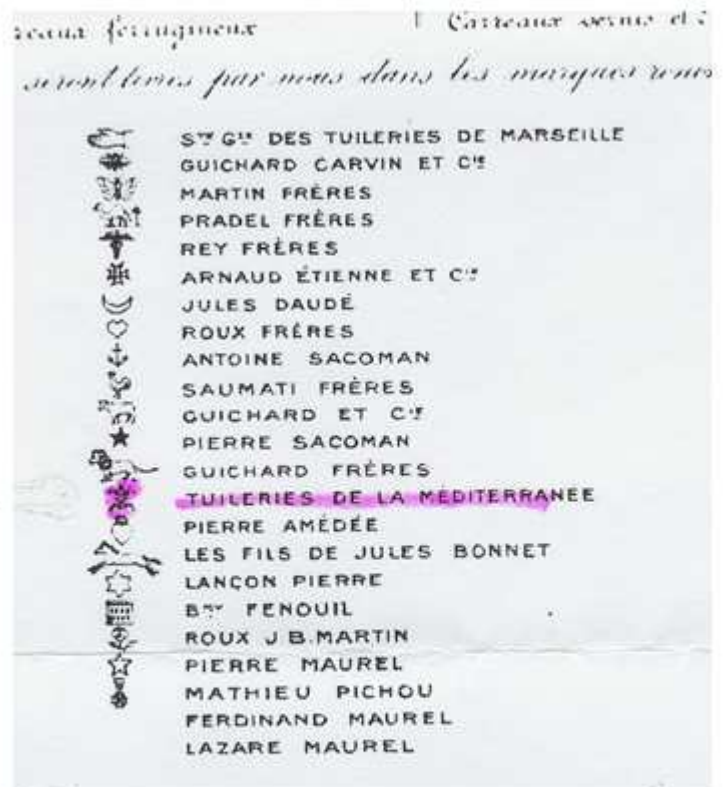 ferrugineux Carreaux vernis et
par nous dans les marques
STÉ GLE DES TUILERIES DE MARSEILLE
GUICHARD CARVIN ET CIE
MARTIN FRÈRES
PRADEL FRÈRES
REY FRÈRES
ARNAUD ÉTIENNE ET CIE
JULES DAUDÉ
ROUX FRÈRES
ANTOINE SACOMAN
SAUMATI FRÈRES
GUICHARD ET CIE
PIERRE SACOMAN
GUICHARD FRÈRES
TUILERIES DE LA MÉDITERRANÉE
PIERRE AMÉDÉE
LES FILS DE JULES BONNET
LANÇON PIERRE
BMY FENOUIL
ROUX J B. MARTIN
PIERRE MAUREL
MATHIEU PICHOU
FERDINAND MAUREL
LAZARE MAUREL